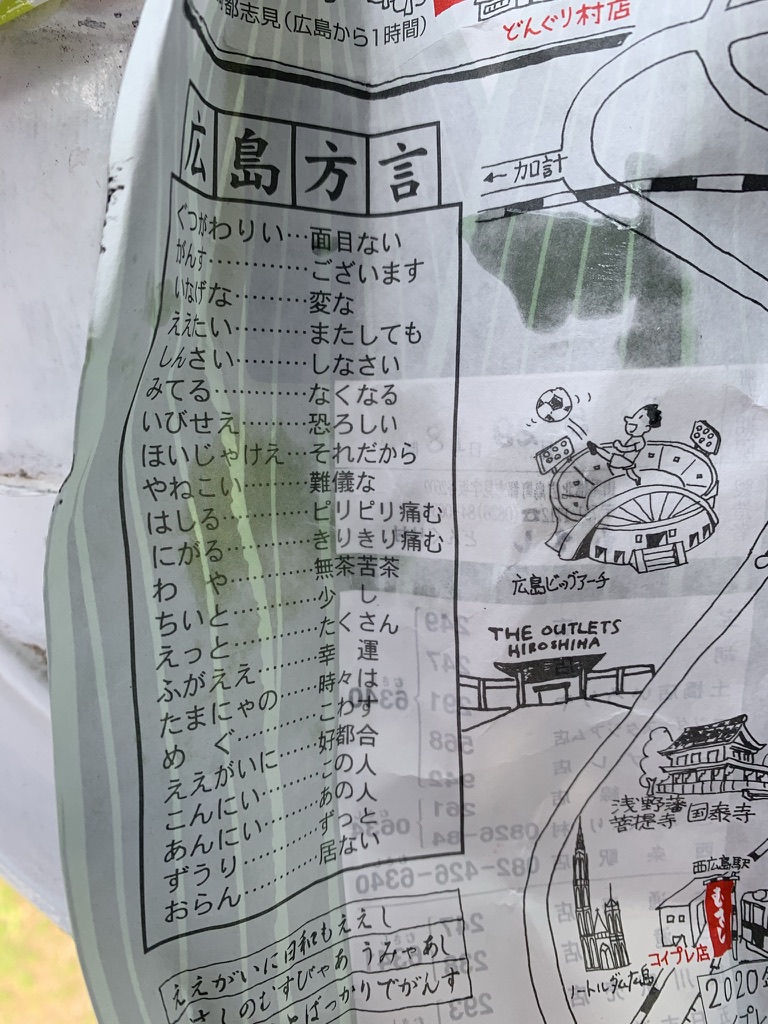 都志見(広島から1時間)
どんぐり村店
広島方言
←加計
ぐつがわりい…面目ない
がんす………ございます
いなげな………変な
ええたい………またしても
しんさい………しなさい
みてる…………なくなる
いびせえ………恐ろしい
ほいじゃけえ…それだから
やねこい………難儀な
はしる…………ピリピリ痛む
にがる…………きりきり痛む
わや…………無茶苦茶
ちいと…………少し
えっと…………たくさん
ふがええ………幸運
たまにゃの……時々は
めぐ…………こわす
ええがいに……好都合
こんにい………この人
あんにい………あの人
ずうり…………ずっと
おらん…………居ない
ええがいに日和もええし
さしのむすびゃあうみゃあし
ばっかりでがんす
広島ビッグアーチ
THE OUTLETS
HIROSHIMA
浅野藩
菩提寺 国泰寺
西広島駅
むさし
コイプレ店
ノートルダム広島
2020